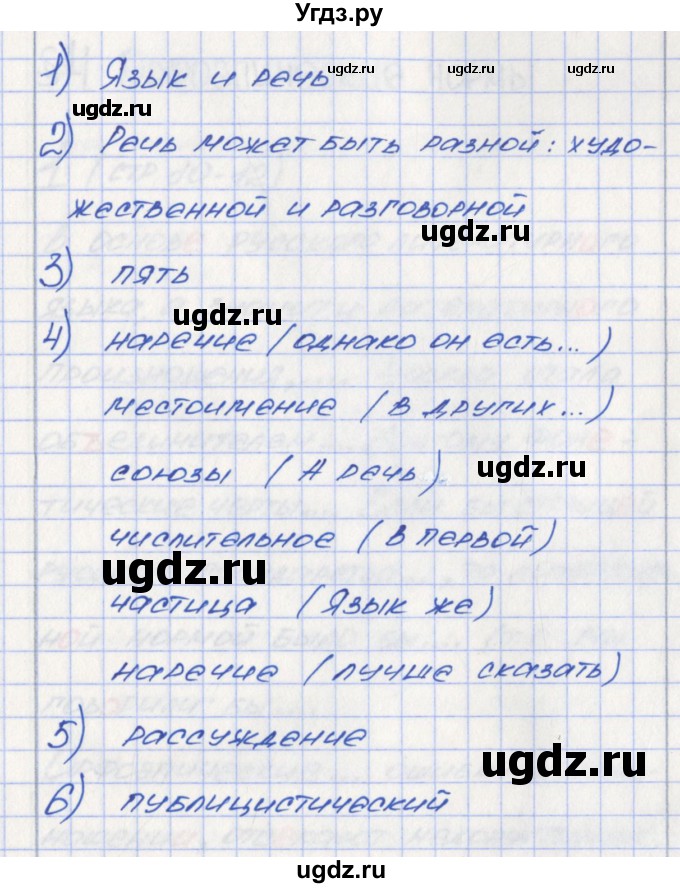 Угдз.ру
1) Язык и речь
ugdz.ru ugdz.ru
ugdz.ru
2) Речь может быть разной: худо-
ugdz.ru ugdz.ru
жественной и разговорной
ugdz.ru
3) пять
ugdz.ru
4) наречие (однако он есть...)
местоимение (в других...)
союзы (А речь)
ugdz.ru
числительное (в первой)
ugdz.ru
частица (Язык же)
наречие (лучше сказать)
5) рассуждение
ugdz.ru
6) публицистический
ugdz.ru